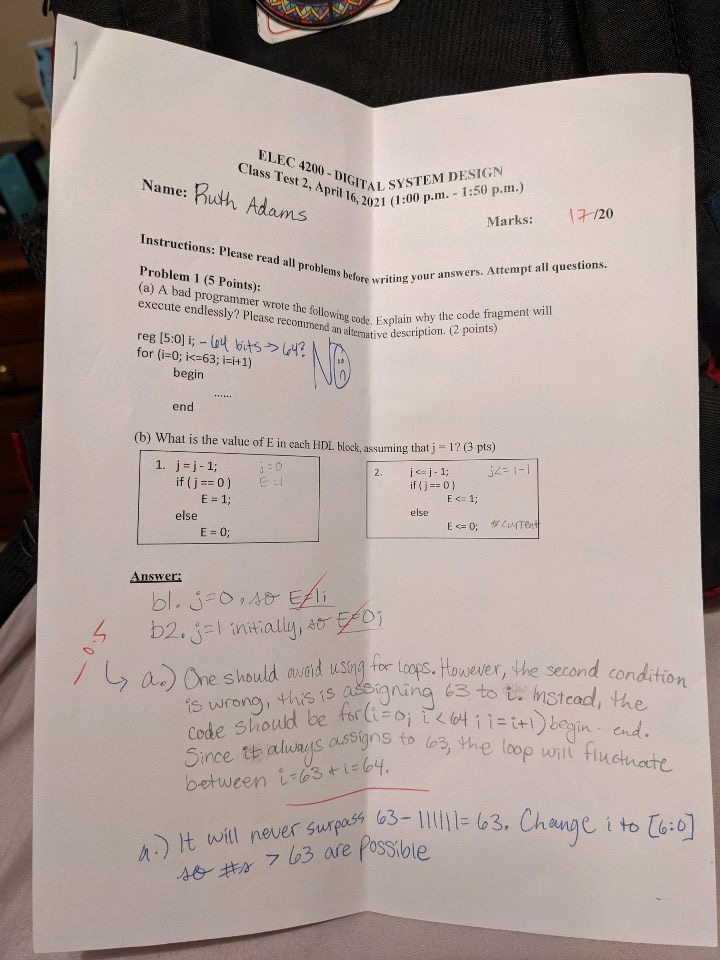 ELEC 4200 - DIGITAL SYSTEM DESIGN
Class Test 2, April 16, 2021 (1:00 p.m. - 1:50 p.m.)
Name: Ruth Adams
Marks: 17/20
Instructions: Please read all problems before writing your answers. Attempt all questions.
Problem 1 (5 Points):
(a) A bad programmer wrote the following code. Explain why the code fragment will
execute endlessly? Please recommend an alternative description. (2 points)
reg [5:0] i; - 64 bits → 64? NO
for (i=0; i<=63; i=i+1)
begin
......
end
(b) What is the value of E in each HDL block, assuming that j = 1? (3 pts)
1. j = j - 1; j=0
if ( j == 0 ) E=1
E = 1;
else
E = 0;
2. j <= j - 1; j<=1-1
if ( j == 0 )
E <= 1;
else
E <= 0; *current
Answer:
b1. j=0, so E=1;
b2. j=1 initially, so E=0;
0.5
a.) One should avoid using for loops. However, the second condition
is wrong, this is assigning 63 to i. Instead, the
code should be for(i=0; i<64; i=i+1) begin ... end.
Since it always assigns to 63, the loop will fluctuate
between i=63 + i=64.
a.) It will never surpass 63 - 111111 = 63. Change i to [6:0]
so #s > 63 are possible